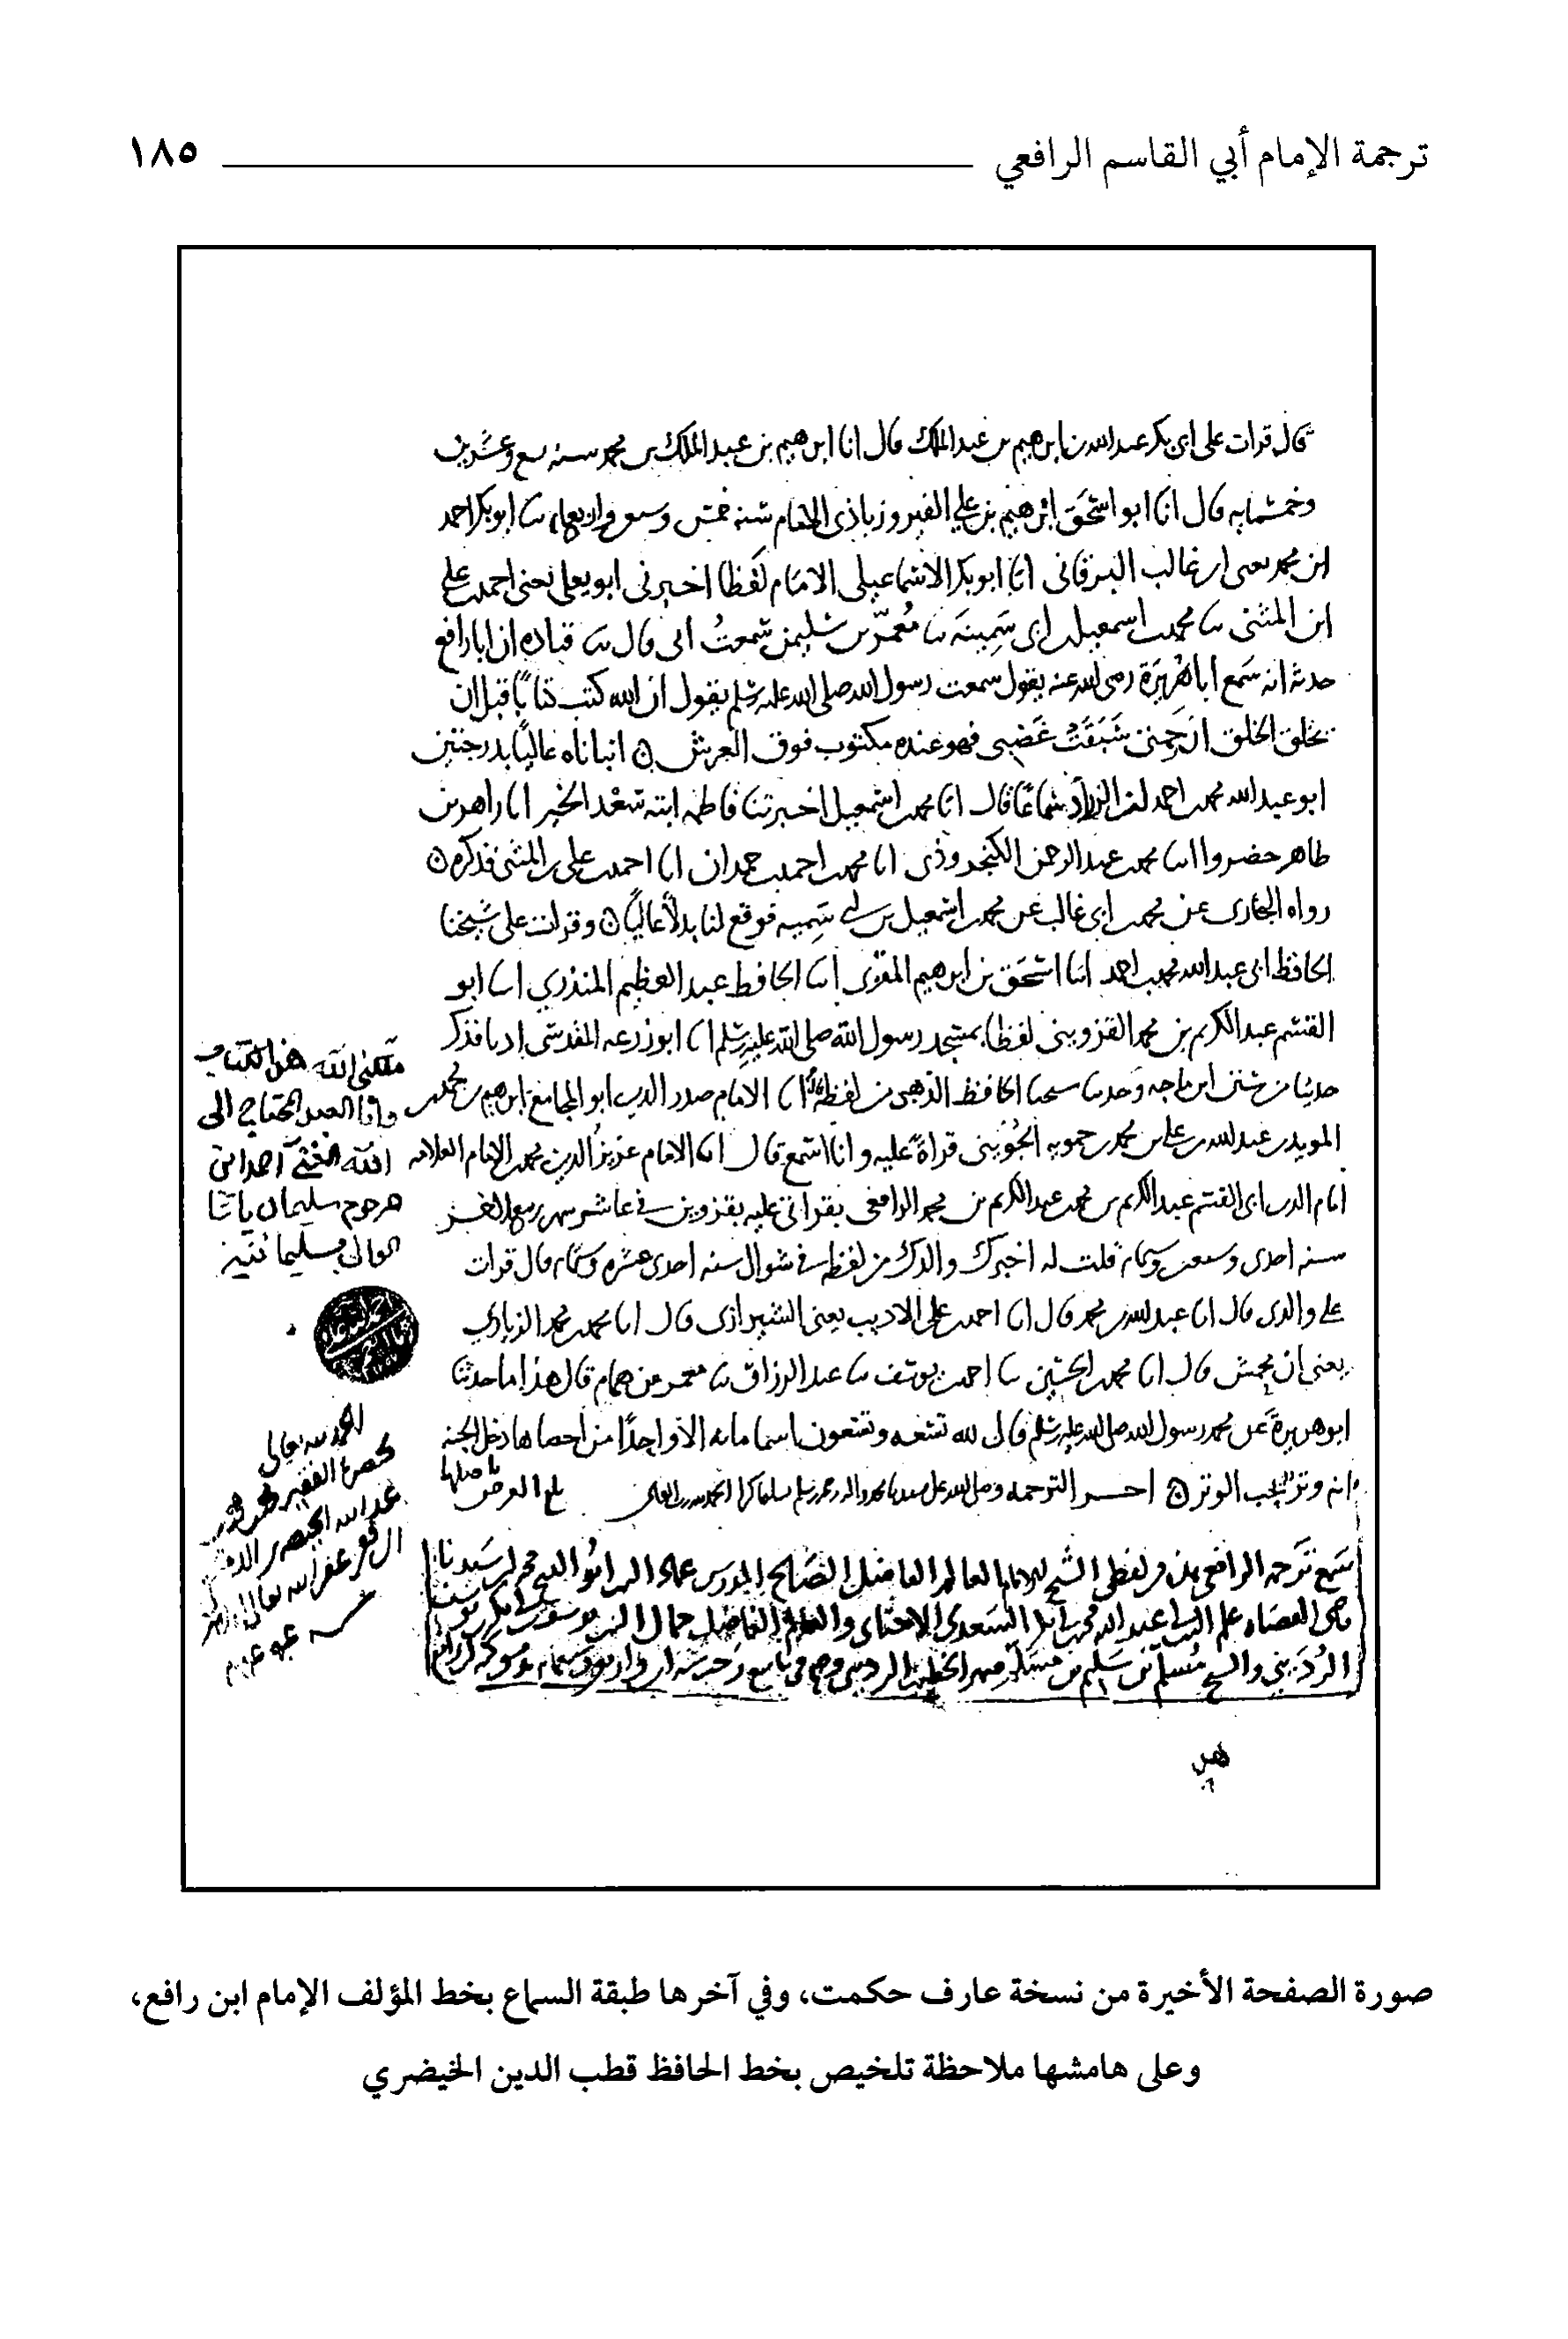 ترجمة الإمام أبي القاسم الرافعي ١٨٥
قال قرات على ابى بكر عبد الله بن ابرهيم بن عبد الملك قال انا ابرهيم بن عبد الملك بن محمد سنه سبع وعشرين
وخمسمايه قال انا ابو اسحق ابرهيم بن علي الفيروزباذي الامام سنه خمس وسبعين واربعمايه ثنا ابو بكر احمد
ابن محمد يعنى ابن غالب البرقانى انا ابو بكر الاسماعيلى الامام لفظا اخبرنى ابو يعلى يعنى احمد بن علي
ابن المثنى ثنا محمد بن اسمعيل بن ابى سمينه ثنا معمر بن سليمن سمعت ابى قال ثنا قتاده ان ابا رافع
حدثه انه سمع ابا هريرة رضى الله عنه يقول سمعت رسول الله صلى الله عليه وسلم يقول ان الله كتب كتابًا قبل ان
يخلق الخلق ان رحمتى سبقت غضبى فهو عنده مكتوب فوق العرش انباناه عاليًا بدرجتين
ابو عبد الله محمد بن احمد بن الزراد سماعًا قال انا محمد بن اسمعيل اخبرتنا فاطمه ابنه سعد الخير انا زاهر بن
طاهر حضورا انا محمد بن عبد الرحمن الكنجروذى انا محمد بن احمد بن حمدان انا احمد بن على بن المثنى فذكره
رواه البخارى عن محمد بن ابى غالب عن محمد بن اسمعيل بن ابى سمينه فوقع لنا بدلاً عاليًا وقرات على شيخنا
الحافظ ابى عبد الله محمد بن احمد انا اسحق بن ابرهيم المقرى انا الحافظ عبد العظيم المنذري انا ابو
القسم عبد الكريم بن محمد القزوينى لفظا بمسجد رسول الله صلى الله عليه وسلم انا ابو زرعه المقدسى اذنا فذكر
حديثا من سنن ابن ماجه وحدثنا شيخنا الحافظ الذهبى من لفظه انا الامام صدر الدين ابو المجامع ابرهيم بن محمد بن
المويد بن عبد الله بن على بن محمد بن حمويه الجوينى قراةً عليه وانا اسمع قال انا الامام عزيز الدين محمد بن الامام العلامه
امام الدين ابى القسم عبد الكريم بن محمد بن عبد الكريم بن محمد الرافعى بقراتى عليه بقزوين في عاشر شهر ربيع الاخر
سنه احدى وسبعين وستمايه قلت له اخبرك والدك من لفظه في شوال سنه احدى عشره وستمايه قال قرات
على والدى قال انا عبد الله بن محمد قال انا احمد بن على الاديب يعنى الشيرازى قال انا محمد بن محمد الزيادي
يعنى ابن محمش قال انا محمد بن الحسين ثنا احمد بن يوسف ثنا عبد الرزاق ثنا معمر عن همام قال هذا ما حدثنا
ابو هريرة عن محمد رسول الله صلى الله عليه وسلم قال لله تسعه وتسعون اسما مايه الا واحدًا من احصاها دخل الجنه
انه وتر يحب الوتر اخر الترجمه وصلى الله على سيدنا محمد واله وصحبه وسلم تسليما كثيرا الحمد لله رب العالمين
بلغ العرض باصلها
سمع ترجمه الرافعى هذه من لفظى الشيخ الامام العالم الفاضل الصالح المدرس عماد الدين ابو الفتح محمد بن سيدنا
قاضى القضاه علم الدين ابى عبد الله محمد بن ابى بكر السعدي الاخنائى والفقيه الفاضل جمال الدين يوسف بن ابى بكر بن
ملكنى الله هذا الكتاب
وانا العبد المحتاج الى
الله الغني احمد ابن
مرحوم سليمان پاشا
الحمد لله تعالى
لخصها الفقير
الخيضرى
صورة الصفحة الأخيرة من نسخة عارف حكمت، وفي آخرها طبقة السماع بخط المؤلف الإمام ابن رافع،
وعلى هامشها ملاحظة تلخيص بخط الحافظ قطب الدين الخيضري